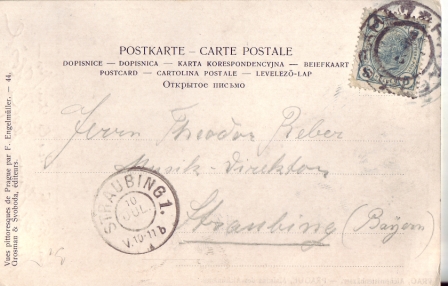 POSTKARTE – CARTE POSTALE
DOPISNICE — DOPISNICA — KARTA KORESPONDENCYJNA — BRIEFKAART
POSTCARD — CARTOLINA POSTALE — LEVELEZŐ-LAP
Открытое письмо
Herrn Theodor Rieber
Musik-Direktor
Straubing (Bayern)
STRAUBING 1.
10
JUL.
V.10-11 b
Vues pittoresques de Prague par F. Engelmüller. — 44.
Grosman & Svoboda, éditeurs.